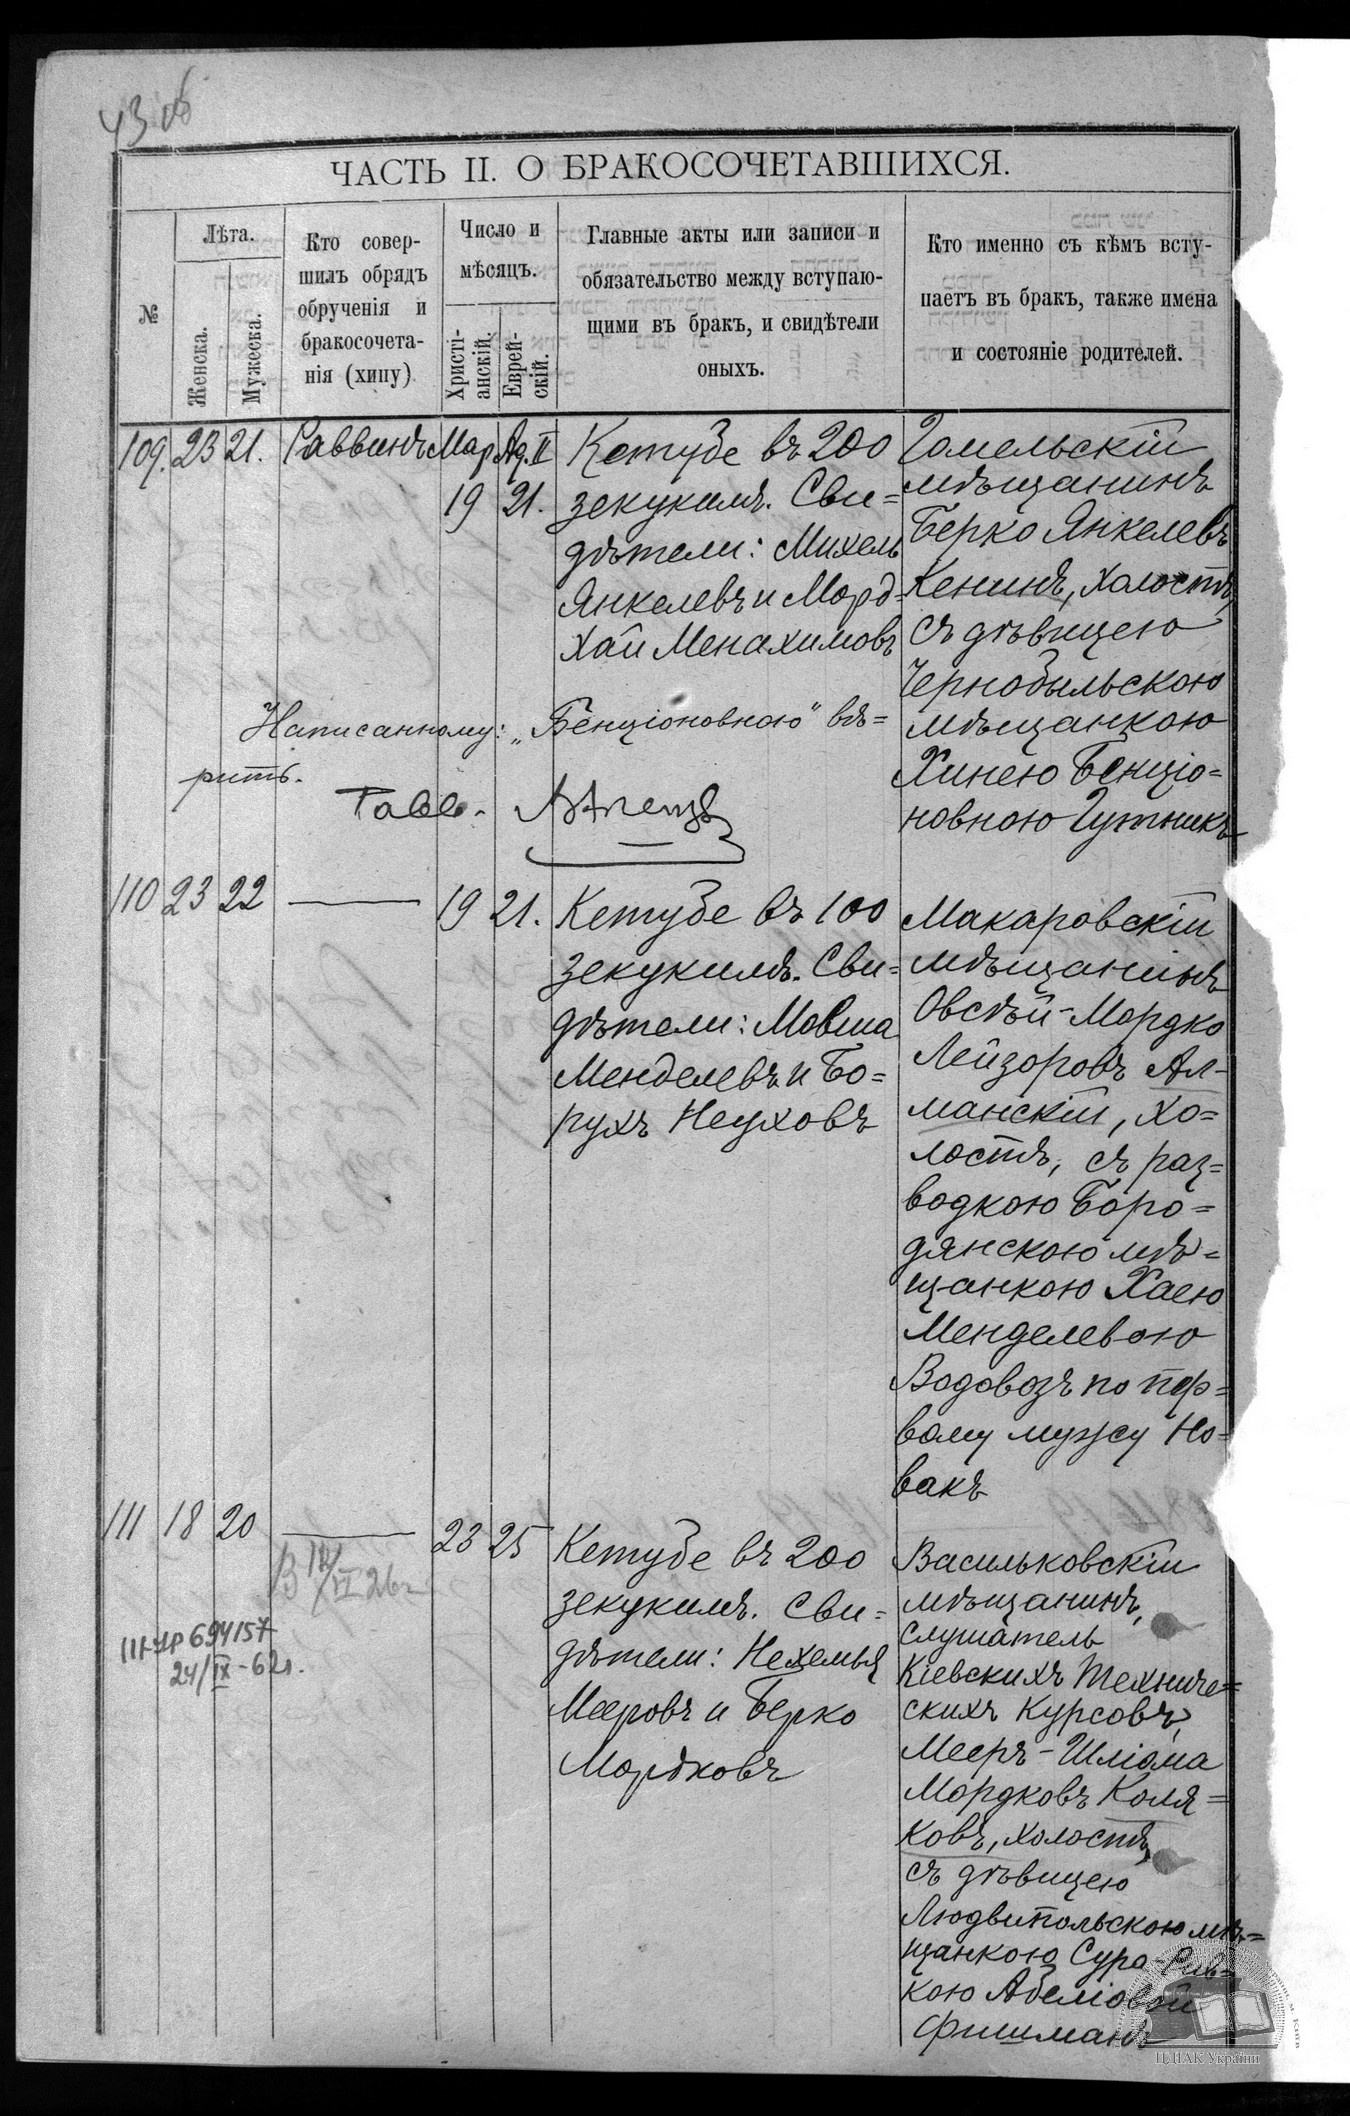 43 об
ЧАСТЬ II. О БРАКОСОЧЕТАВШИХСЯ.
№
Лѣта.
Женска.
Мужеска.
Кто совер-
шилъ обрядъ
обрученія и
бракосочета-
нія (хупу)
Число и
мѣсяцъ.
Христі-
анскій.
Еврей-
скій.
Главные акты или записи и
обязательство между вступаю-
щими въ бракъ, и свидѣтели
оныхъ.
Кто именно съ кѣмъ всту-
паетъ въ бракъ, также имена
и состояніе родителей.
109. 23 21. Раввинъ Мар. Ад. II
19 21.
Кетубе въ 200
зекукимъ. Сви=
дѣтели: Михель
Янкелевъ и Морд-
хай Менахимовъ
Гомельскій
мѣщанинъ
Берко Янкелевъ
Кенинъ, холостъ,
съ дѣвицею
Чернобыльскою
мѣщанкою
Хинею Бенціо=
новною Гутникъ
Написанному: „Бенціоновною" вѣ=
рить.
Равв.
110 23 22 19 21.
Кетубе въ 100
зекукимъ. Сви=
дѣтели: Мовша
Менделевъ и Бо=
рухъ Неуховъ
Макаровскій
мѣщанинъ
Овсѣй-Мордко
Лейзоровъ Ал-
манскій, хо=
лостъ, съ раз=
водкою Боро=
дянскою мѣ=
щанкою Хаею
Менделевою
Водовозъ по пер=
вому мужу Но-
вакъ
111 18 20 23 25
Кетубе въ 200
зекукимъ. Сви=
дѣтели: Нехемья
Мееровъ и Берко
Мордковъ
Васильковскій
мѣщанинъ,
слушатель
Кіевскихъ Техниче=
скихъ Курсовъ,
Мееръ-Шліома
Мордковъ Коля=
ковъ, холостъ,
съ дѣвицею
Людвипольскою мѣ=
щанкою Сура-Рив=
кою Абеліовой
Фишманъ
VI 26г
694157
24/IX-62г.
ЦДІАК України